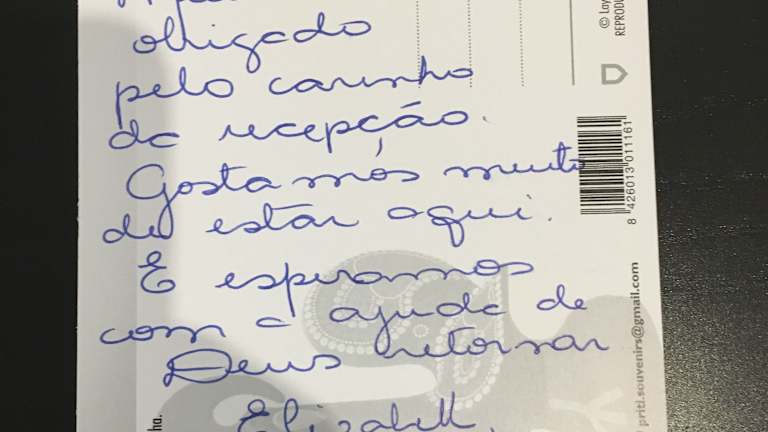 obrigado
pelo carinho
da recepção.
Gostamos muito
de estar aqui.
E esperamos
com a ajuda de
Deus retornar
Elizabeth.
© Lay
REPRODU
8 426013 011161
priti.souvenirs@gmail.com
ha.